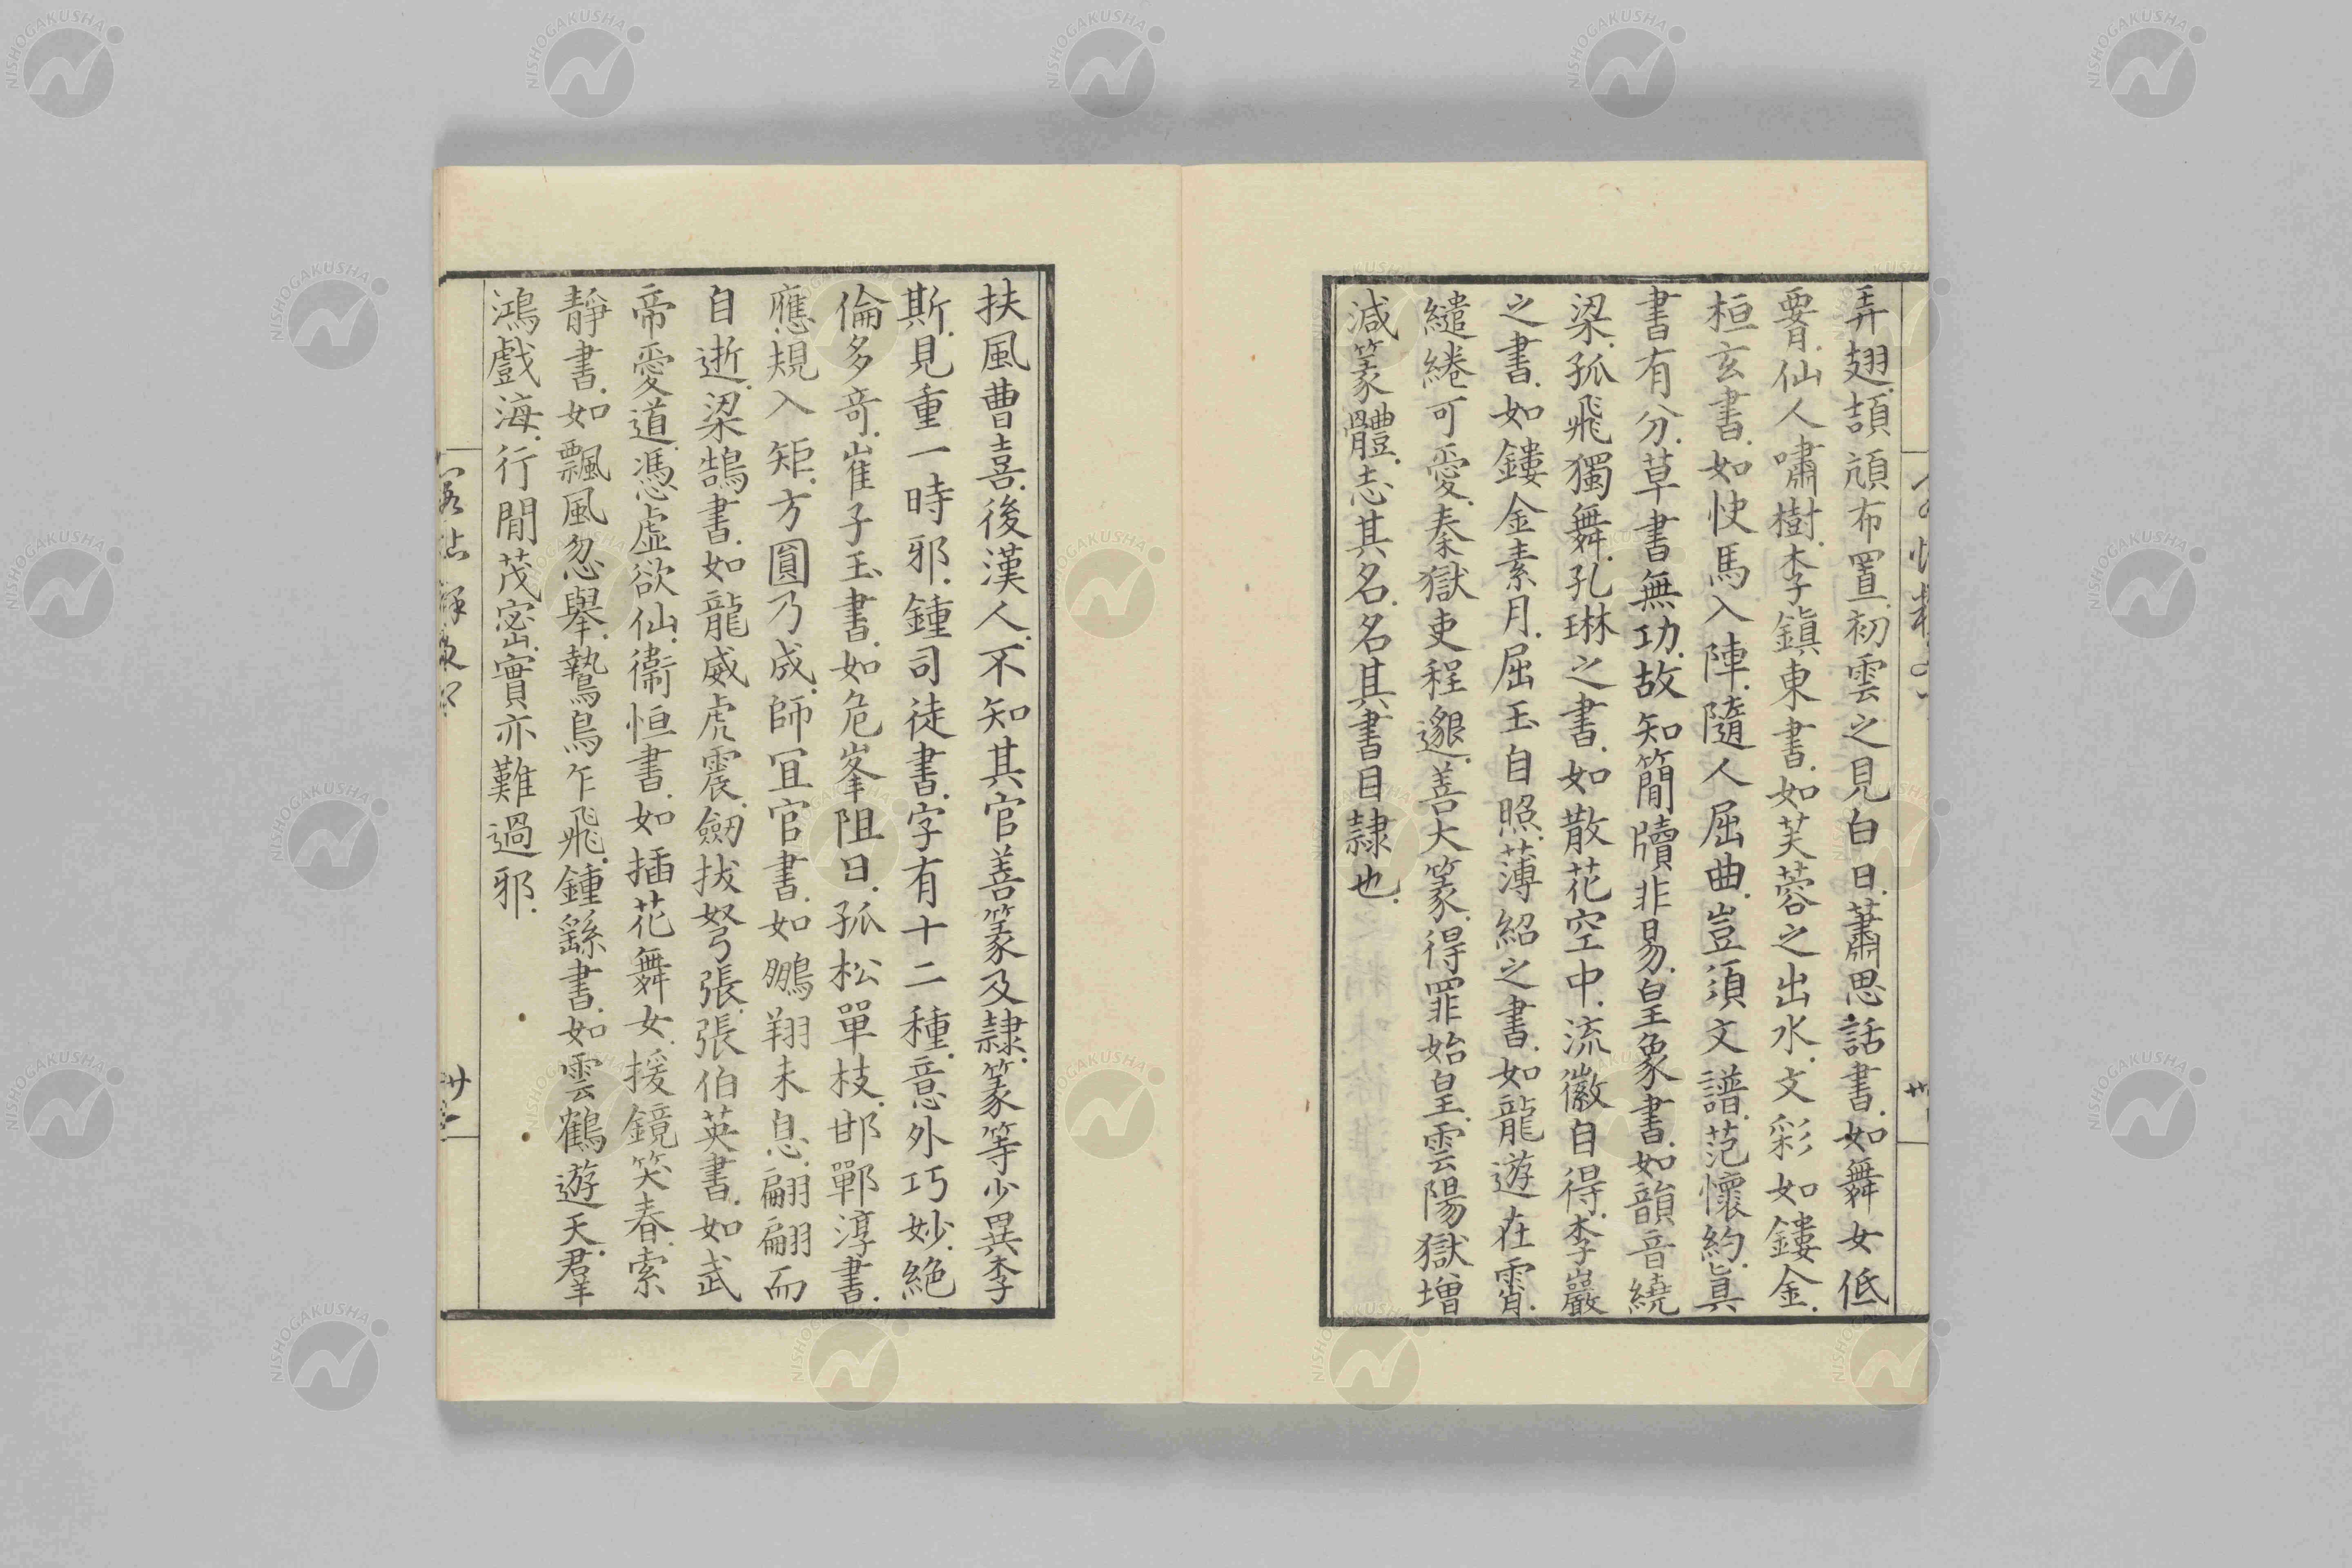 弄翅頡頏布置初雲之見白日蕭思話書如舞女低
䙅仙人嘯樹李鎮東書如芙蓉之出水文彩如鏤金
桓玄書如快馬入陣隨人屈曲豈須文譜范懷約真
書有分草書無功故知簡牘非易皇象書如韻音繞
梁孤飛獨舞孔琳之書如散花空中流徽自得李巖
之書如鏤金素月屈玉自照薄紹之書如龍遊在霄
繾綣可愛秦獄吏程邈善大篆得罪始皇雲陽獄增
減篆體志其名名其書目隷也
扶風曹喜後漢人不知其官善篆及隷篆等少異李
斯見重一時邪鍾司徒書字有十二種意外巧妙絶
倫多奇崔子玉書如危峯阻日孤松單枝邯鄲淳書
應規入矩方圓乃成師冝官書如鵬翔未息翩翩而
自逝梁鵠書如龍威虎震劒拔弩張張伯英書如武
帝愛道馮虚欲仙衞恒書如插花舞女援鏡笑春索
靜書如飄風忽舉鷙鳥乍飛鍾繇書如雲鶴遊天羣
鴻戲海行間茂密實亦難過邪
NISHOGAKUSHA